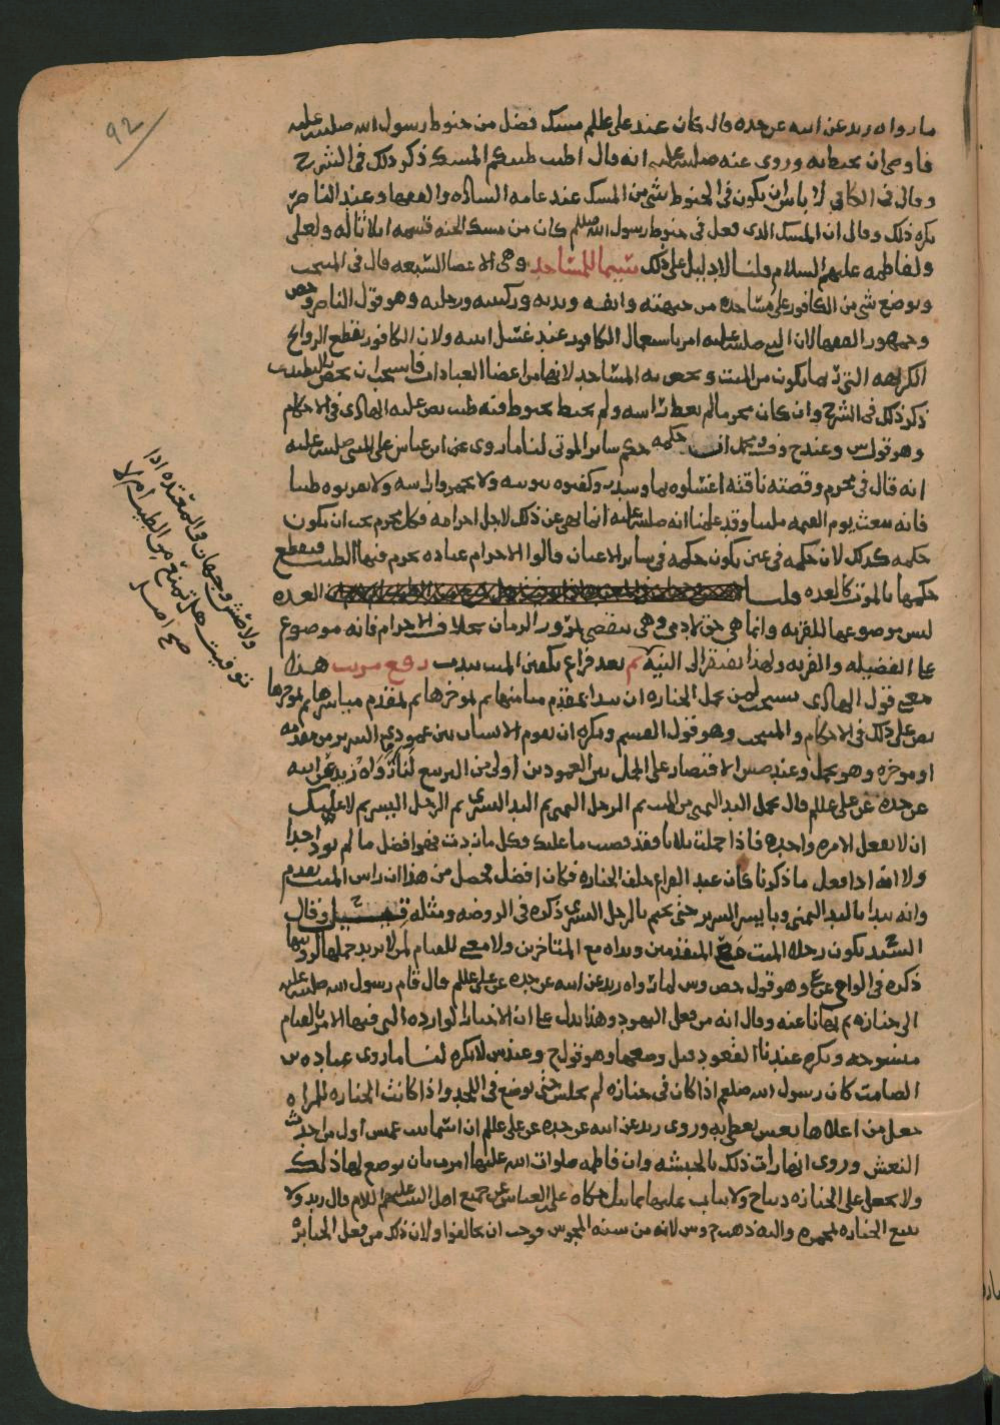 ما رواه زيد عن ابيه عن جده قال كان عند علي علىلم مسك فضل من حنوط رسول الله صلى الله عليه
فاوصى ان يحنط به وروي عنه صلى الله عليه انه قال اطيب طيبكم المسك ذكر ذلك في الشرح
وقال في الكافي لا باس ان يكون في الحنوط شي من المسك عند عامه الساده والفقها وعند الناصر
يكره ذلك وقال ان المسك الذي فعل في حنوط رسول الله صلعم كان من مسك الجنه قسمه اثلاثا له ولعلي
ولفاطمه عليهم السلام ولنا لا دليل على ذلك سيما المساجد وهي الاعضا السبعه قال في المنتخب
ويوضع شي من الكافور على مساجده من جبهته وانفه ويديه وركبتيه ورجليه وهو قول الناصر وحص
وجمهور الفقها لان النبي صلى الله عليه امر باستعمال الكافور عند غسل ابنته ولان الكافور يقطع الروايح
الكريهه التي ربما يكون من الميت ويخص به المساجد لانها من اعضا العبادات فاستحب ان يخص بالتطييب
ذكر ذلك في الشرح وان كان محرما لم يغط راسه ولم يحنط بحنوط فيه طيب نص عليه الهادي في الاحكام
وهو قول س وعند ح وف ومحمد ان حكمه حكم ساير الموتى لنا ما روي عن ابن عباس عن النبي صلى الله عليه
انه قال في محرم وقصته ناقته اغسلوه بما وسدر وكفنوه بثوبيه ولا تخمروا راسه ولا تقربوه طيبا
فانه يبعث يوم القيمه ملبيا وقد علمنا انه صلى الله عليه انما نهى عن ذلك لاجل احرامه فكل محرم يجب ان يكون
حكمه كذلك لان حكمه في عين يكون حكمه في ساير الاعيان قالوا الاحرام عباده يحرم فيها الطيب فينقطع
حكمها بالموت كالعده قلنا العده
ليس موضوعها للقربه وانما هي حق لادمي وهي تنقضي بمرور الزمان بخلاف الاحرام فانه موضوع
على الفضيله والقربه ولهذا يفتقر الى النيه ثم بعد فراغ تكفين الميت يندب رفع مرتب هذا
معنى قول الهادي يستحب لمن حمل الجنازه ان يبدا بمقدم ميامنها ثم بموخرها ثم بمقدم مياسرها ثم بموخرها
نص على ذلك في الاحكام والمنتخب وهو قول القسم ويكره ان يقوم الانسان بين عمودي السرير من مقدمه
او موخره وهو يحمل وعند ص س الاقتصار على الحمل بين العمودين اولى من التربيع لنا ما رواه زيد عن ابيه
عن جده عن علي علىلم قال تحمل اليد اليمنى من الميت ثم الرجل اليمنى ثم اليد اليسرى ثم الرجل اليسرى ثم لا عليك
ان لا تفعل الا مره واحده فاذا حملت ثلاثا فقد قضيت ما عليك وكل ما زدت فهو افضل ما لم توذ احدا
ولا انه اذا فعل ما ذكرنا كان عند الفراغ خلف الجنازه فكان افضل محصل من هذا ان راس الميت يقدم
وانه يبدا باليد اليمنى وبايسر السرير حتى يختم بالرجل اليسرى ذكره في الروضه ومثله قيل وقال
السيد يكون رجلا الميت مع المتقدمين ويداه مع المتاخرين ولا معنى للقيام لمن لا يريد حملها لمرورها
ذكره في الوافي عن ع وهو قول حص وس لما رواه زيد عن ابيه عن جده عن علي علىلم قال قام رسول الله صلى الله عليه
الى جنازه ثم نهانا عنه وقال انه من فعل اليهود وهذا يدل على ان الاخبار الوارده التي فيها الامر بالقيام
منسوخه ويكره عندنا القعود قبل وضعها وهو قول ح وعند س لا يكره لنا ما روى عباده بن
الصامت كان رسول الله صلعم اذا كان في جنازه لم يجلس حتى يوضع في اللحد واذا كانت الجنازه للمراه
جعل من اعلاها نعش يغطى به وروى زيد عن ابيه عن جده عن علي علىلم ان اسما بنت عميس اول من احدث
النعش وروي انها رات ذلك بالحبشه وان فاطمه صلوات الله عليها امرت بان يوضع لها ذلك
ولا يجعل على الجنازه ديباج ولا ثياب عليها تماثيل حكاه علي بن العباس عن جميع اهل البيت عليهم السلام قال زيد ولا
تتبع الجنازه بمجمره واليه ذهب ح وس لانه من سنه المجوس فوجب ان يخالفوا ولان ذلك من فعل الجبابره
ولا مش وجهان في المعتده اذا
توفيت هل تمنع من الطيب ام لا
صح اصـل
٩٢